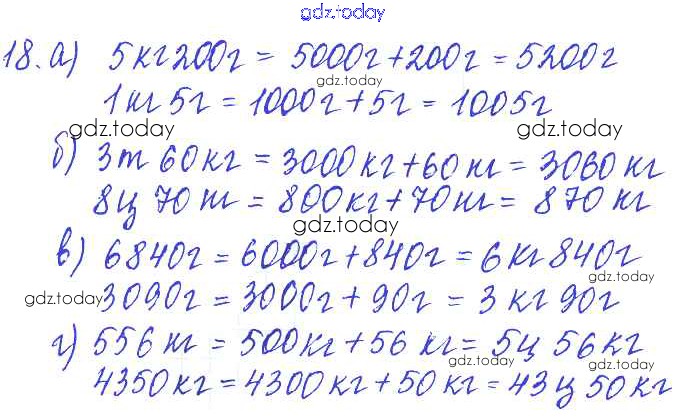 gdz.today
18. а) 5кг200г = 5000г+200г = 5200г
gdz.today
1кг 5г = 1000г+5г = 1005г
gdz.today gdz.today
б) 3т 60кг = 3000кг+60кг = 3060 кг
8ц 70кг = 800кг+70кг = 870 кг
gdz.today
в) 6840г = 6000г+840г = 6кг840г
gdz.today
gdz.today 3090г = 3000г+90г = 3 кг 90г
gdz.today
г) 556кг = 500кг+56 кг = 5ц 56кг
gdz.today gdz.today
4350кг = 4300кг+50кг = 43ц 50кг
gdz.today